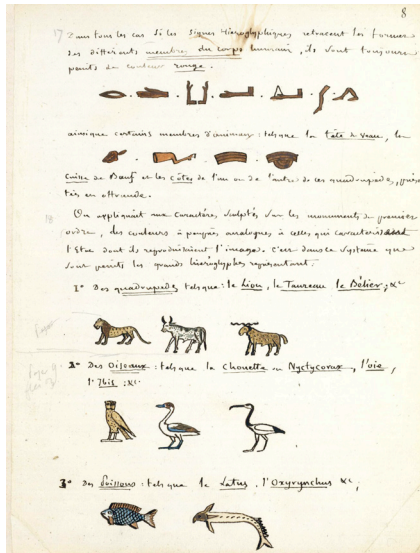 8
17 Dans tous les cas si les signes hieroglyphiques retracent les formes
des différents membres du corps humain, ils sont toujours
peints de couleur rouge.
ainsique certains membres d'animaux : telsque la tête de veau, la
Cuisse de Bœuf et les côtes de l'un ou de l'autre de ces quadrupèdes,
tés en offrande.
18 On appliquait aux caractères sculptés sur les monuments de premier
ordre, des couleurs à peuprès analogues à celles qui caractérisaient
l'Etre dont ils reproduisaient l'image. c'est dans ce système que
sont peints les grands hieroglyphes représentant.
1° Des quadrupedes telsque : le Lion, le Taureau le Bélier ; &c
2° Des Oiseaux : telsque la Chouette ou Nycticorax, l'oie,
l'Ibis ; &c.
3° Des Poissons : telsque le Latus, l'Oxyrynchus &c,